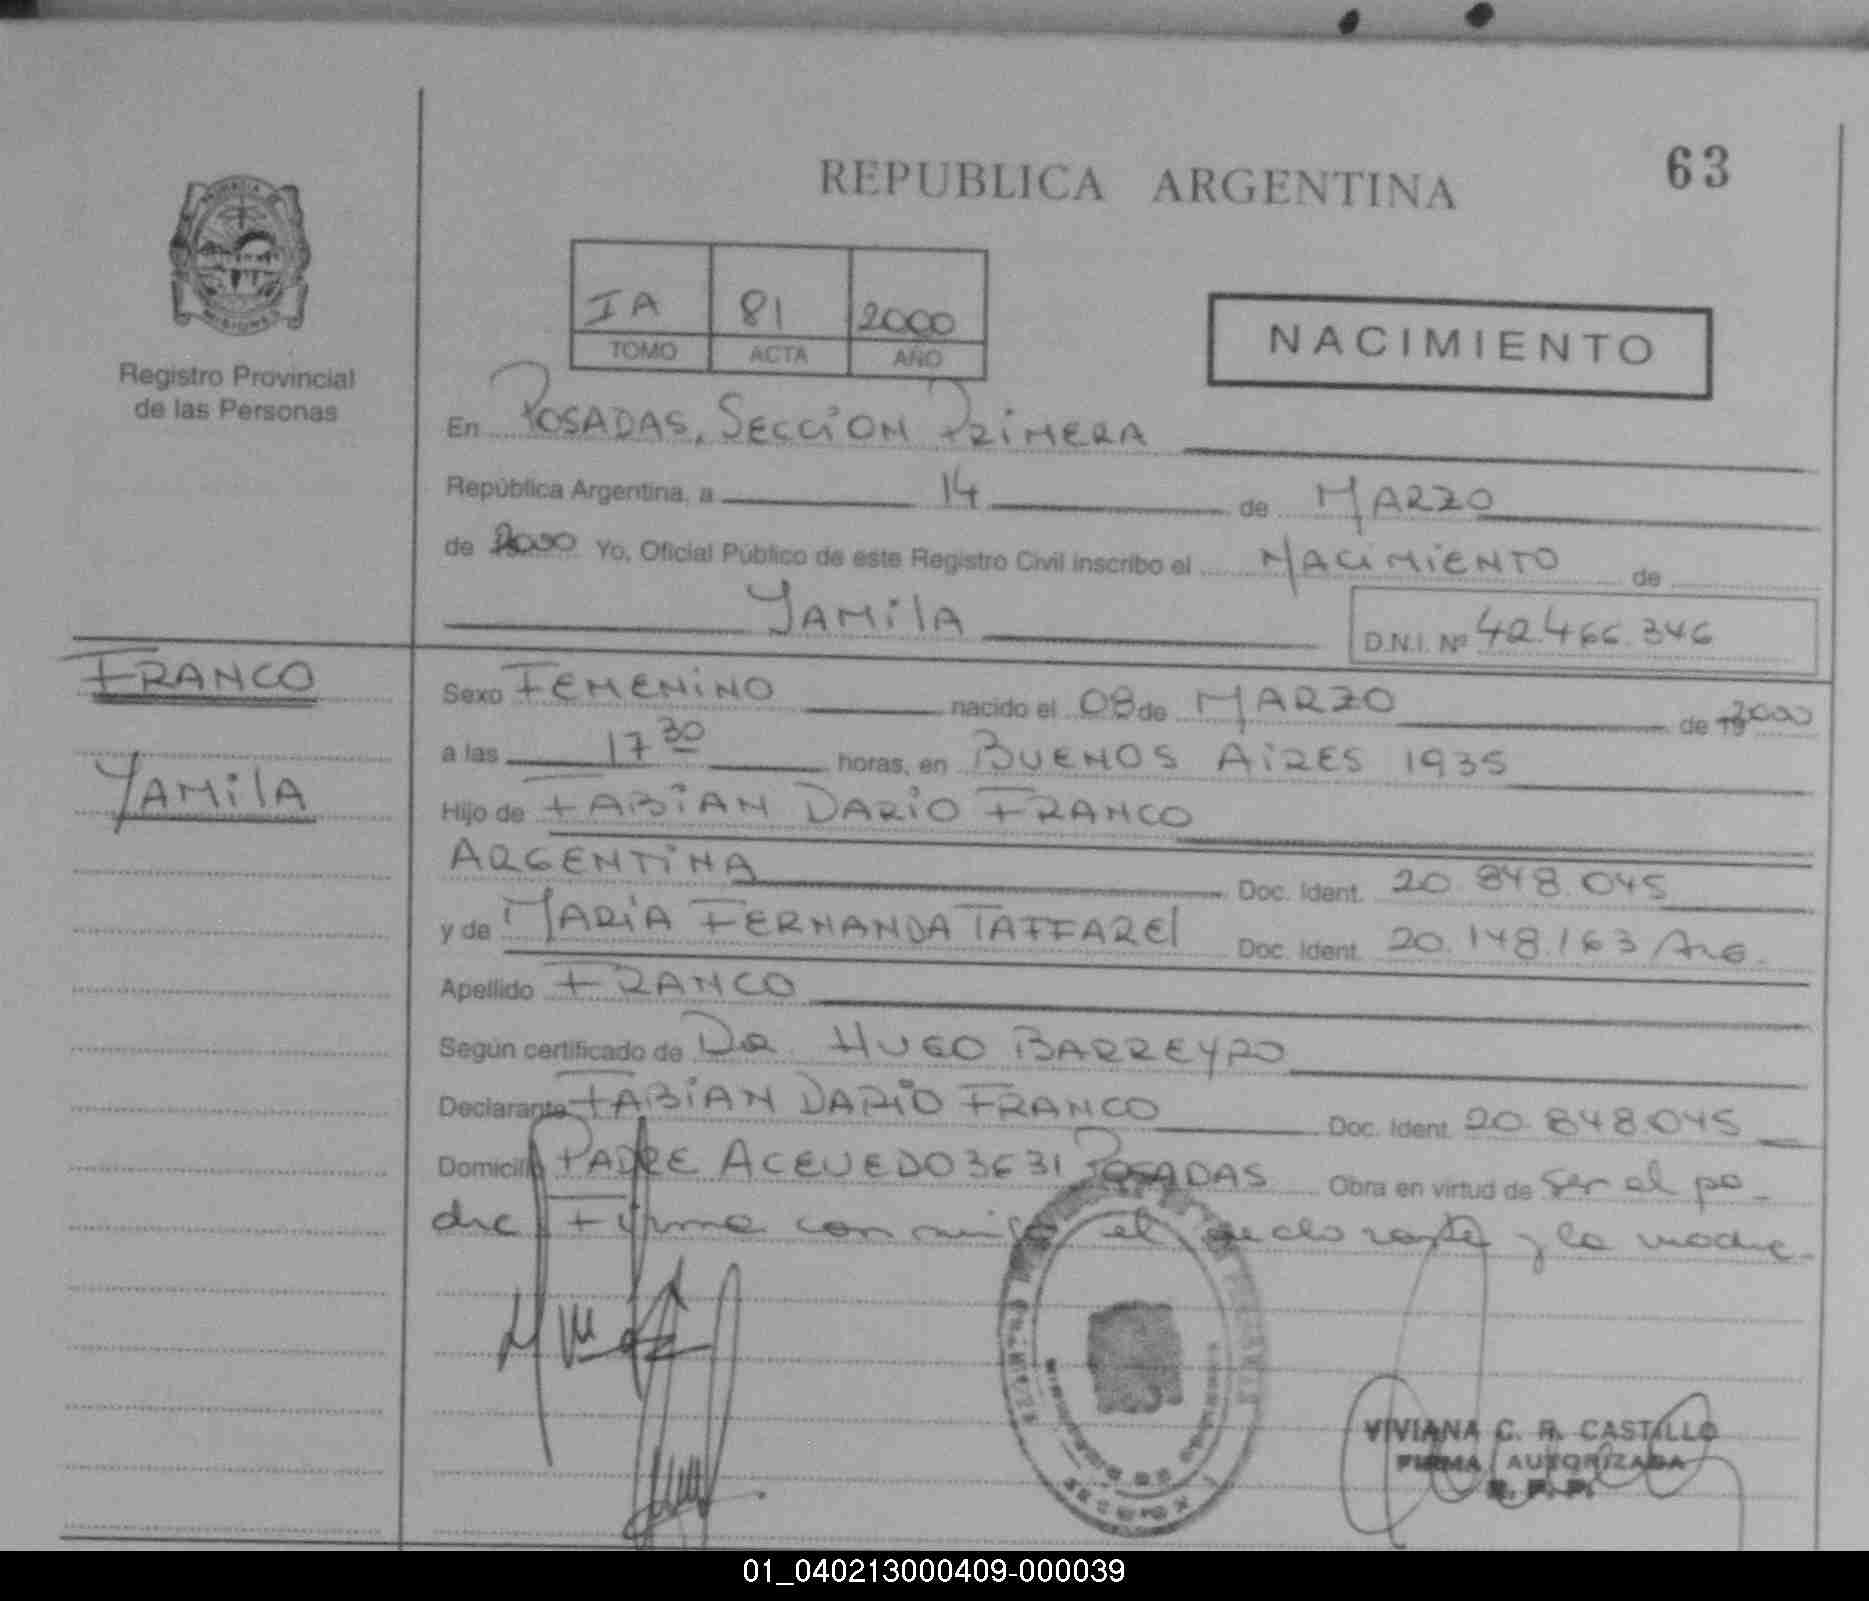 63
REPUBLICA ARGENTINA
MISIONES
Registro Provincial
de las Personas
IA 81 2000
TOMO ACTA AÑO
NACIMIENTO
En POSADAS, SECCION PRIMERA
República Argentina, a 14 de MARZO
de 2000 Yo, Oficial Público de este Registro Civil inscribo el NACIMIENTO de
YAMILA
D.N.I. Nº 42.466.346
FRANCO
YAMILA
Sexo FEMENINO nacido el 08 de MARZO de 2000
a las 17 30 horas, en BUENOS AIRES 1935
Hijo de FABIAN DARIO FRANCO
ARGENTINA Doc. Ident. 20.848.045
y de MARIA FERNANDA TAFFAREL Doc. Ident. 20.148.163 Arg.
Apellido FRANCO
Según certificado de DR. HUGO BARREYRO
Declarante FABIAN DARIO FRANCO Doc. Ident. 20.848.045
Domicilio PADRE ACEVEDO 3631 POSADAS Obra en virtud de ser el pa-
dre Firma con migo el declarante y la madre.
VIVIANA C. R. CASTILLO
FIRMA AUTORIZADA
R. P. P.
01_040213000409-000039